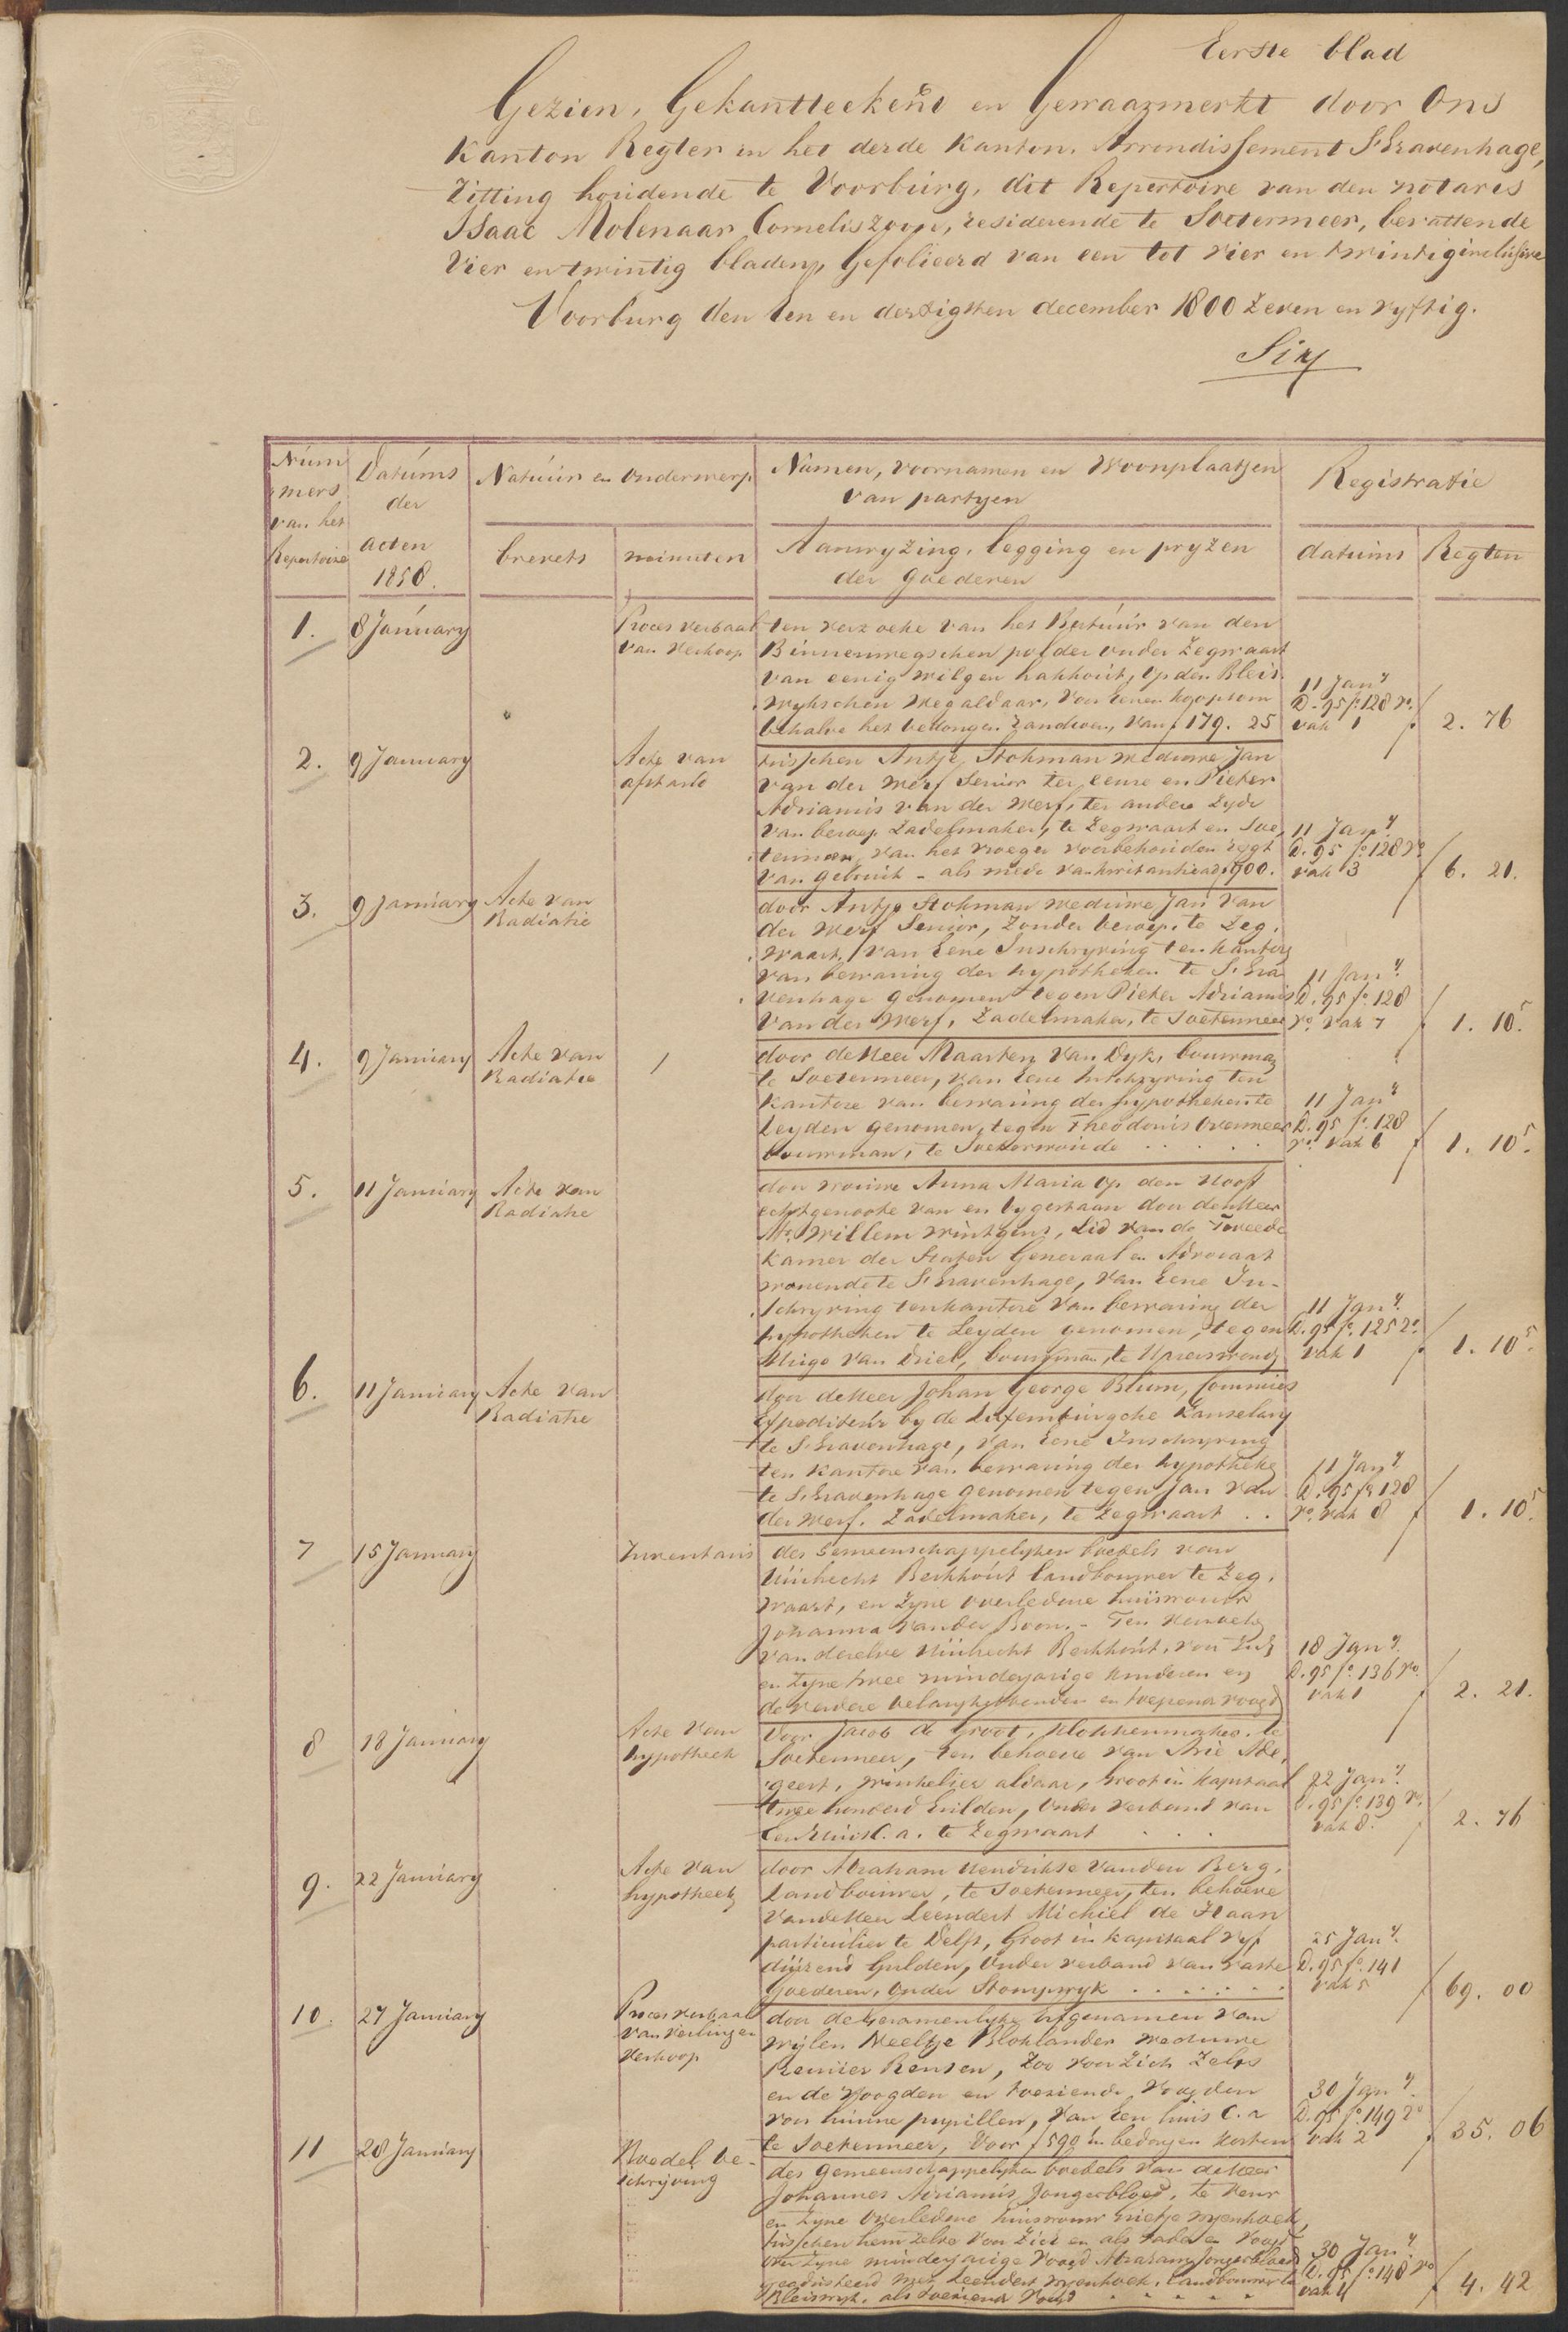 Eerste blad
Gezien, Gekantteekend en Gewaarmerkt door Ons
Kanton Regter in het derde Kanton, Arrondissement S'Gravenhage,
Zitting houdende te Voorburg, dit Repertoire van den notaris
Isaac Molenaar Corneliszoon, residerende te Soetermeer, bevattende
Vier en twintig bladen, Gefolieerd van een tot vier en twintig inclusive
Voorburg den een en dertigsten december 1800 zeven en vyftig.
Num
mers
van het
Repertoire
Datums
der
acten
1858.
Natuur en Onderwerp
brevets
minuten
Namen, voornamen en Woonplaatsen
van partyen
Aanwyzing, legging en pryzen
der goederen
Registratie
datums
Regten
1.
8 January
Proces verbaal
van Verkoop
ten verzoeke van het Bestuur van den
Binnenwegschen polder onder Zegwaart
van eenig wilgen hakhout, op den Bleis
wykschen weg aldaar, voor eenen koopsom
behalve het bedongen van f 179. 25
11 Jany
D. 95 fo. 128 ro.
vak 1
f 2. 76
2.
9 January
Acte van
afstand
tusschen Antje Stokman weduwe Jan
van der Werf Senior ter eenre en Pieter
Adrianus van der Werf, ter andere zyde
van beroep Zadelmaker, te Zegwaart en Soe
termeer, van het vroeger voorbehouden regt
van gebruik - als mede van kwitantie ad f 900.
11 Jany
D. 95 fo. 128 ro
vak 3
f 6. 21.
3.
9 January
Acte van
Radiatie
door Antje Stokman weduwe Jan van
der Werf Senior, zonder beroep, te Zeg
waart, van Eene Inschryving ten kantore
van bewaring der hypotheken te S'Gra
venhage genomen tegen Pieter Adrianus
van der Werf, Zadelmaker, te Soetermeer
11 Jany
D. 95 fo. 128
ro. vak 7
f 1. 10 5.
4.
9 January
Acte van
Radiatie
door de Heer Maarten van Dyk, bouwman
te Soetermeer, van Eene Inschryving ten
kantore van bewaring der hypotheken te
Leyden genomen, tegen Theodorus Overmeer
bouwman, te Soeterwoude
11 Jany
D. 95 fo. 128
ro. vak 6
f 1. 10 5.
5.
11 January
Acte van
Radiatie
door vrouwe Anna Maria Op den Hooff
echtgenoote van en bygestaan door den Heer
Mr. Willem Wintgens, Lid van de Tweede
Kamer der Staten Generaal en Advocaat
wonende te S'Gravenhage, van Eene In-
schryving ten kantore van bewaring der
hypotheken te Leyden genomen, tegen
Hugo van Driel, bouwman, te
11 Jany
D. 95 fo. 125 ro.
vak 1
f 1. 10 5.
6.
11 January
Acte van
Radiatie
door de Heer Johan George Blum, Commies
Expediteur by de Luxemburgsche Kanselary
te S'Gravenhage, van Eene Inschryving
ten kantore van bewaring der hypotheken
te S'Gravenhage genomen tegen Jan van
der Werf, Zadelmaker, te Zegwaart . .
11 Jany
D. 95 fo. 128
ro. vak 8
f 1. 10 5.
7
15 January
Inventaris
des Gemeenschappelyken boedels van
Huibrecht Berkhout landbouwer te Zeg
waart, en Zyne overledene huisvrouw
Johanna van der Boon. - Ten verzoeke
van denzelve Huibrecht Berkhout, voor Zich
en Zyne twee minderjarige kinderen en
de verdere belanghebbenden en toeziend voogd
18 Jany
D. 95 fo. 136 vo.
vak 1
f 2. 21.
8
18 January
Acte van
hypotheek
door Jacob de Groot, klokkenmaker, te
Soetermeer, ten behoeve van Arie Ade
geest, winkelier aldaar, Groot in kapitaal
twee honderd Gulden, onder verband van
Een Huis C. a. te Zegwaart
22 Jany
D. 95 fo. 139 vo.
vak 8.
f 2. 76
9.
22 January
Acte van
hypotheek
door Abraham Hendrikse van den Berg,
Landbouwer, te Soetermeer, ten behoeve
van de Heer Leendert Michiel de Haan
particulier te Delft, Groot in kapitaal vyf
duizend Gulden, Onder verband van vaste
Goederen, onder Stompwyk
25 Jany
D. 95 fo. 141
vak 5
f 69. 00
10.
27 January
Proces verbaal
van veilingen
Verkoop
door de Gezamenlyke Erfgenamen van
wylen Neeltje Bloklander weduwe
Reinier Rensen, Zoo voor Zich Zelve
en de voogden en toeziende voogden
voor hunne pupillen, van Een huis C. a
te Soetermeer, voor f 590 en bedongen kosten
30 Jany
D. 95 fo. 149 ro
vak 2
f 35. 06
11
28 January
Boedel be-
schryving
des Gemeenschappelyken boedels van de Heer
Johannes Adrianus Jongerbloed, te Veur
en Zyne Overledene huisvrouw Grietje Wyenhoek,
tusschen hem zelve voor Zich en als Vader en Voogd
over Zyne minderjarige Abraham Jongerbloed
geadsisteerd met Leendert Wyenhoek, Landbouwer te
Bleiswyk, als toeziend Voogd
30 Jany
D. 95 fo. 148 vo
vak 4
f 4. 42